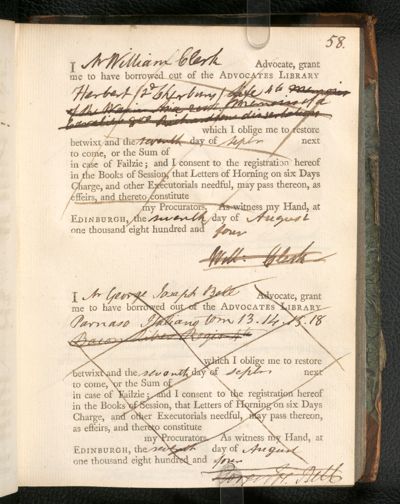 58.
I Mr William Clerk Advocate, grant
me to have borrowed out of the ADVOCATES LIBRARY
Herbert (Ld Cherbury) Life 4to Memoirs
of the
Cavalier
which I oblige me to restore
betwixt and the seventh day of Septr next
to come, or the Sum of
in case of Failzie; and I consent to the registration hereof
in the Books of Session, that Letters of Horning on six Days
Charge, and other Executorials needful, may pass thereon, as
effeirs, and thereto constitute
my Procurators. As witness my Hand, at
EDINBURGH, the seventh day of August
one thousand eight hundred and four
Will: Clerk
I Mr George Joseph Bell Advocate, grant
me to have borrowed out of the ADVOCATES LIBRARY
Parnaso Italiano tom 13.14.15.18
Bacon
which I oblige me to restore
betwixt and the seventh day of Septr next
to come, or the Sum of
in case of Failzie; and I consent to the registration hereof
in the Books of Session, that Letters of Horning on six Days
Charge, and other Executorials needful, may pass thereon,
as effeirs, and thereto constitute
my Procurators. As witness my Hand, at
EDINBURGH, the seventh day of August
one thousand eight hundred and four
George Jos. Bell